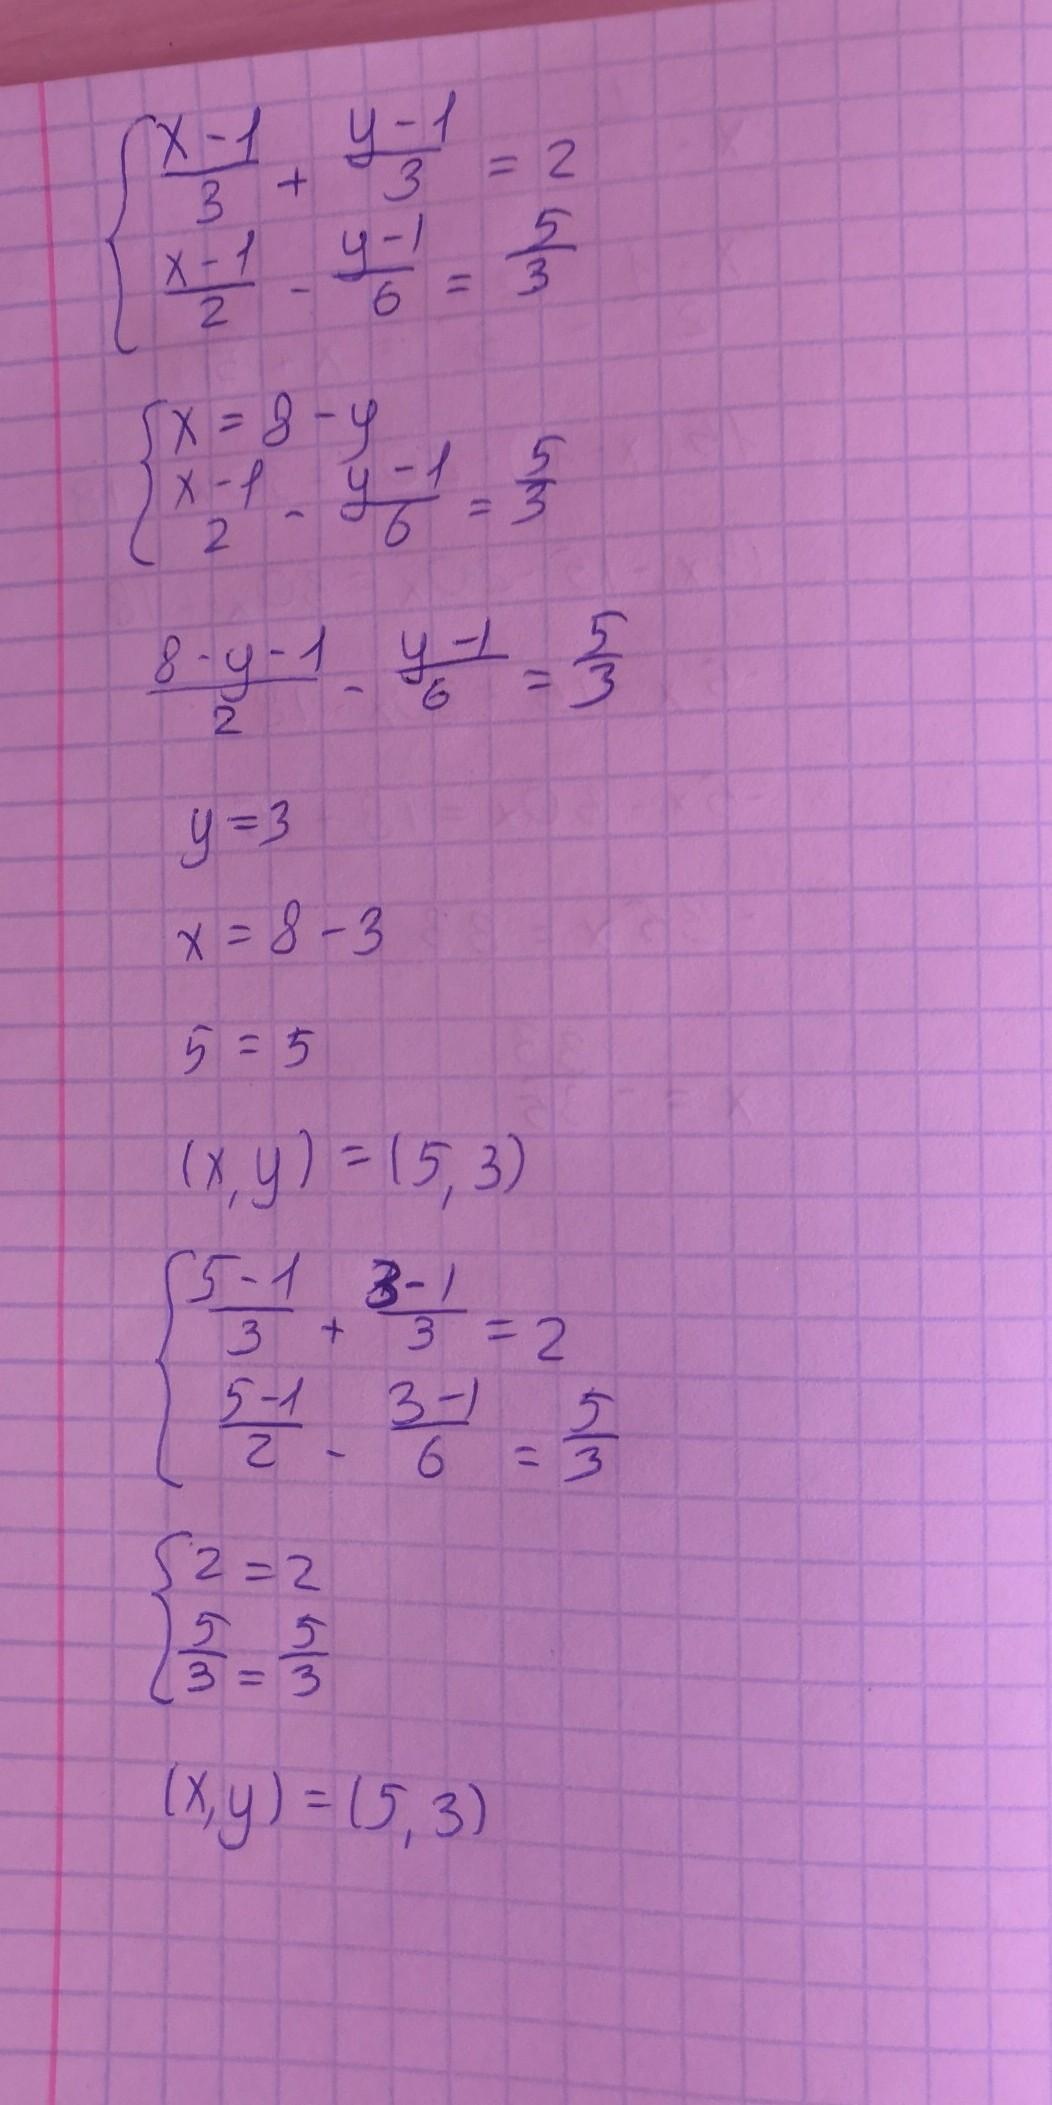 { (x-1)/3 + (y-1)/3 = 2
(x-1)/2 - (y-1)/6 = 5/3
{ x = 8 - y
(x-1)/2 - (y-1)/6 = 5/3
(8-y-1)/2 - (y-1)/6 = 5/3
y = 3
x = 8 - 3
5 = 5
(x, y) = (5, 3)
{ (5-1)/3 + (3-1)/3 = 2
(5-1)/2 - (3-1)/6 = 5/3
{ 2 = 2
5/3 = 5/3
(x, y) = (5, 3)